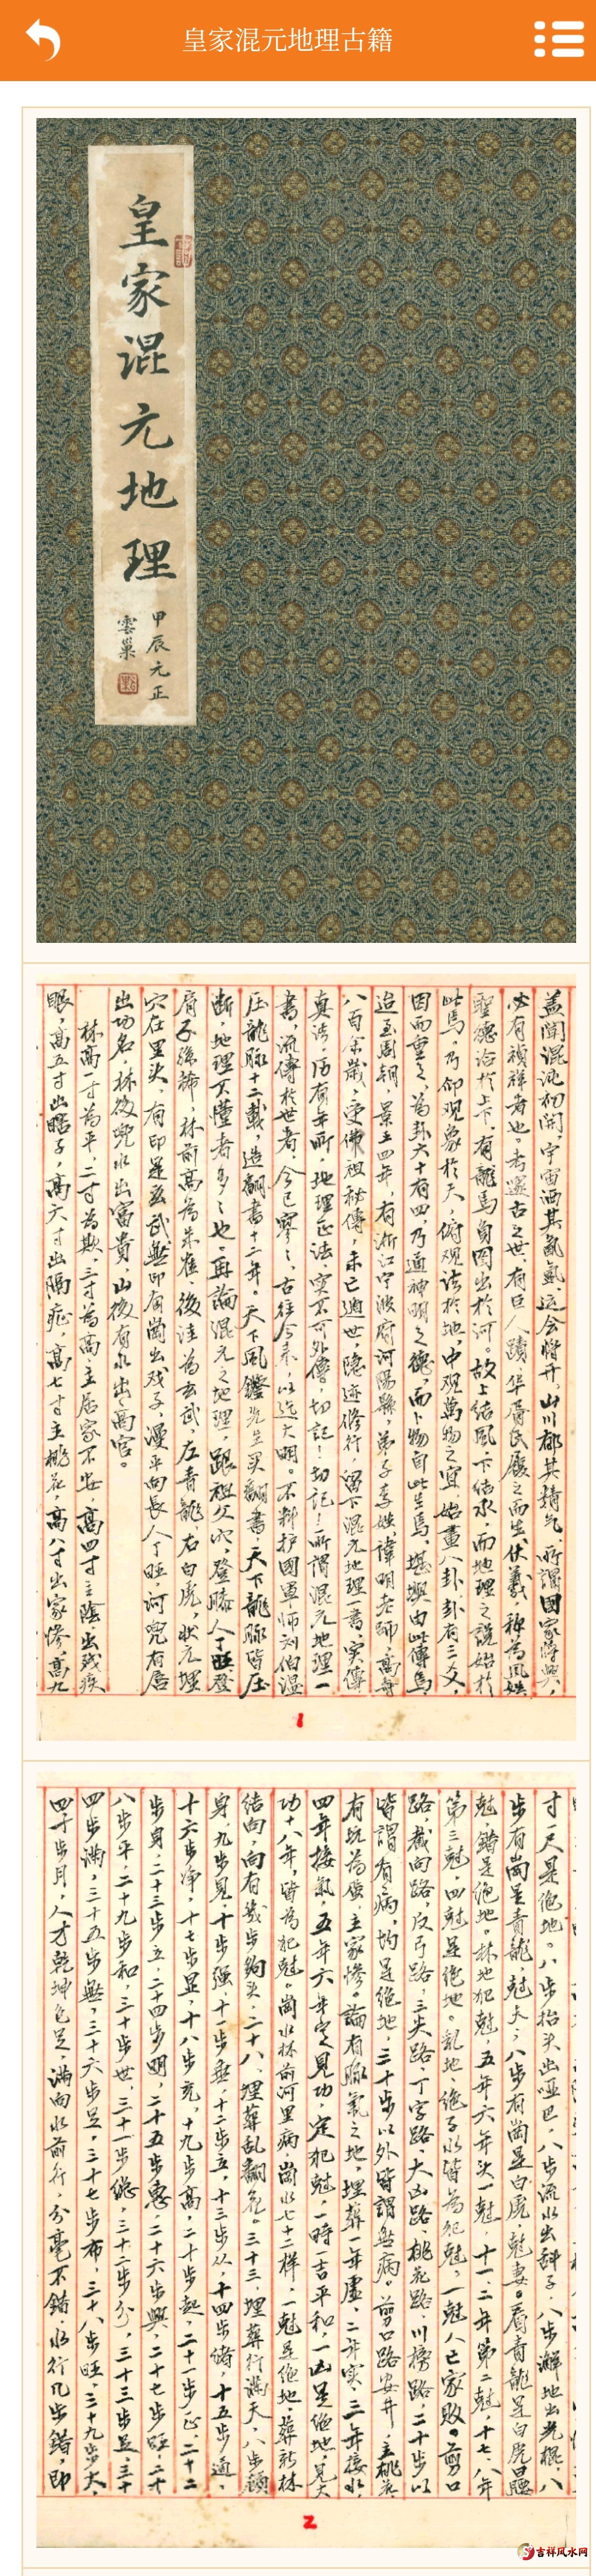 皇家混元地理古籍
皇家混元地理
甲辰元正
雲巢
盖闻混沌初开，宇宙洒其氤氲，运会将开，山川郁其精气，所谓国家将兴，
必有祯祥者也。考遂古之世，有巨人蹟，华胥氏履之而生伏羲，称为风姓，
聖德洽於上下，有龍馬負图出於河。故上结風，下结水，而地理之説始於
此焉。乃仰观象於天，俯观法於地，中观萬物之宜，始畫八卦，卦有三爻，
因而重之，為卦六十有四，乃通神明之德，而卜物自此生焉，堪輿由此傳焉，
迨至周朝，景王四年，有浙江宁波府河陽縣，弟子李姓，諱明老師，高寿
八百余歲，受佛祖秘傳，未已過世，隐迹修行，留下混元地理一書，实傳
真法，历有年所，地理正法，实不可外傳。切記！切記！所謂混元地理一
書，流傳於世者，今已寥々，古往今来，以迄大明。不料护國軍师刘伯温
压龍脉十二載，造翻書十二年。天下風鑑先生买翻書，天下龍脉皆压
断，地理不懂者多々也，再論混元之地理，跟祖父穴，登膝人丁旺，登
肩子孫稀，林前高為朱雀，後洼為玄武，左青龍，右白虎，状元埋
穴在里头，有印是玄武，無印有崗出残子，漫平向長人丁旺，河兜有唇
出功名，林後兜水出富貴，山後有水出高官。
林高一寸為平，二寸為欺，三寸為高，主居家不安，高四寸主陰出残疾
眼，高五寸出瞎子，高六寸出隔症，高七寸主桃花，高八寸出家惨，高九
1
寸一尺是绝地。八步抬头出哑巴，八步流水出辞子，八步濂地出光棍，八
步有崗是青龍，魁夫，八步有崗是白虎，魁妻。看青龍是白虎腿
魁，錯是绝地。林地犯魁，五年六年头一魁，十一二年第二魁，十七、八年
第三魁，四魁是绝地。乱地、绝子水皆為犯魁，一魁人亡家敗。剪口
路，截向路，反弓路，三尖路，丁字路，大凶路，桃花路，川榜路，二十步以
皆謂有病，均是绝地，三十步以外皆謂無病。剪口路安井，主桃花，
有坑為癀，主家惨。論有脉氣之地，埋葬一年虚，二年实，三年接水，
四年接氣，五年六年定見功，定犯魁，一時一吉平和，一凶是绝地，見大
功十八年，皆為犯魁。崗水林前河里病，崗水七十二样，一魁是绝地，葬新林
结向，向有幾步鉤头，二十八、埋葬乱翻花。三十三，埋葬行满天，八步顧
身，九步見，十步强，十一步無，十二步立，十三步从，十四步绪，十五步通，
十六步净，十七步显，十八步克，十九步高，二十步起，二十一步正，二十二
步身，二十三步立，二十四步明，二十五步惠，二十六步興，二十七步旺，二十
八步平，二十九步和，三十步世，三十一步總，三十二步分，三十三步显，三十
四步滿，三十五步無，三十六步足，三十七步布，三十八步旺，三十九步大，
四十步月，人才乾坤色足，滿向水前行，分毫不錯，水行几步錯，即
2
吉祥风水网